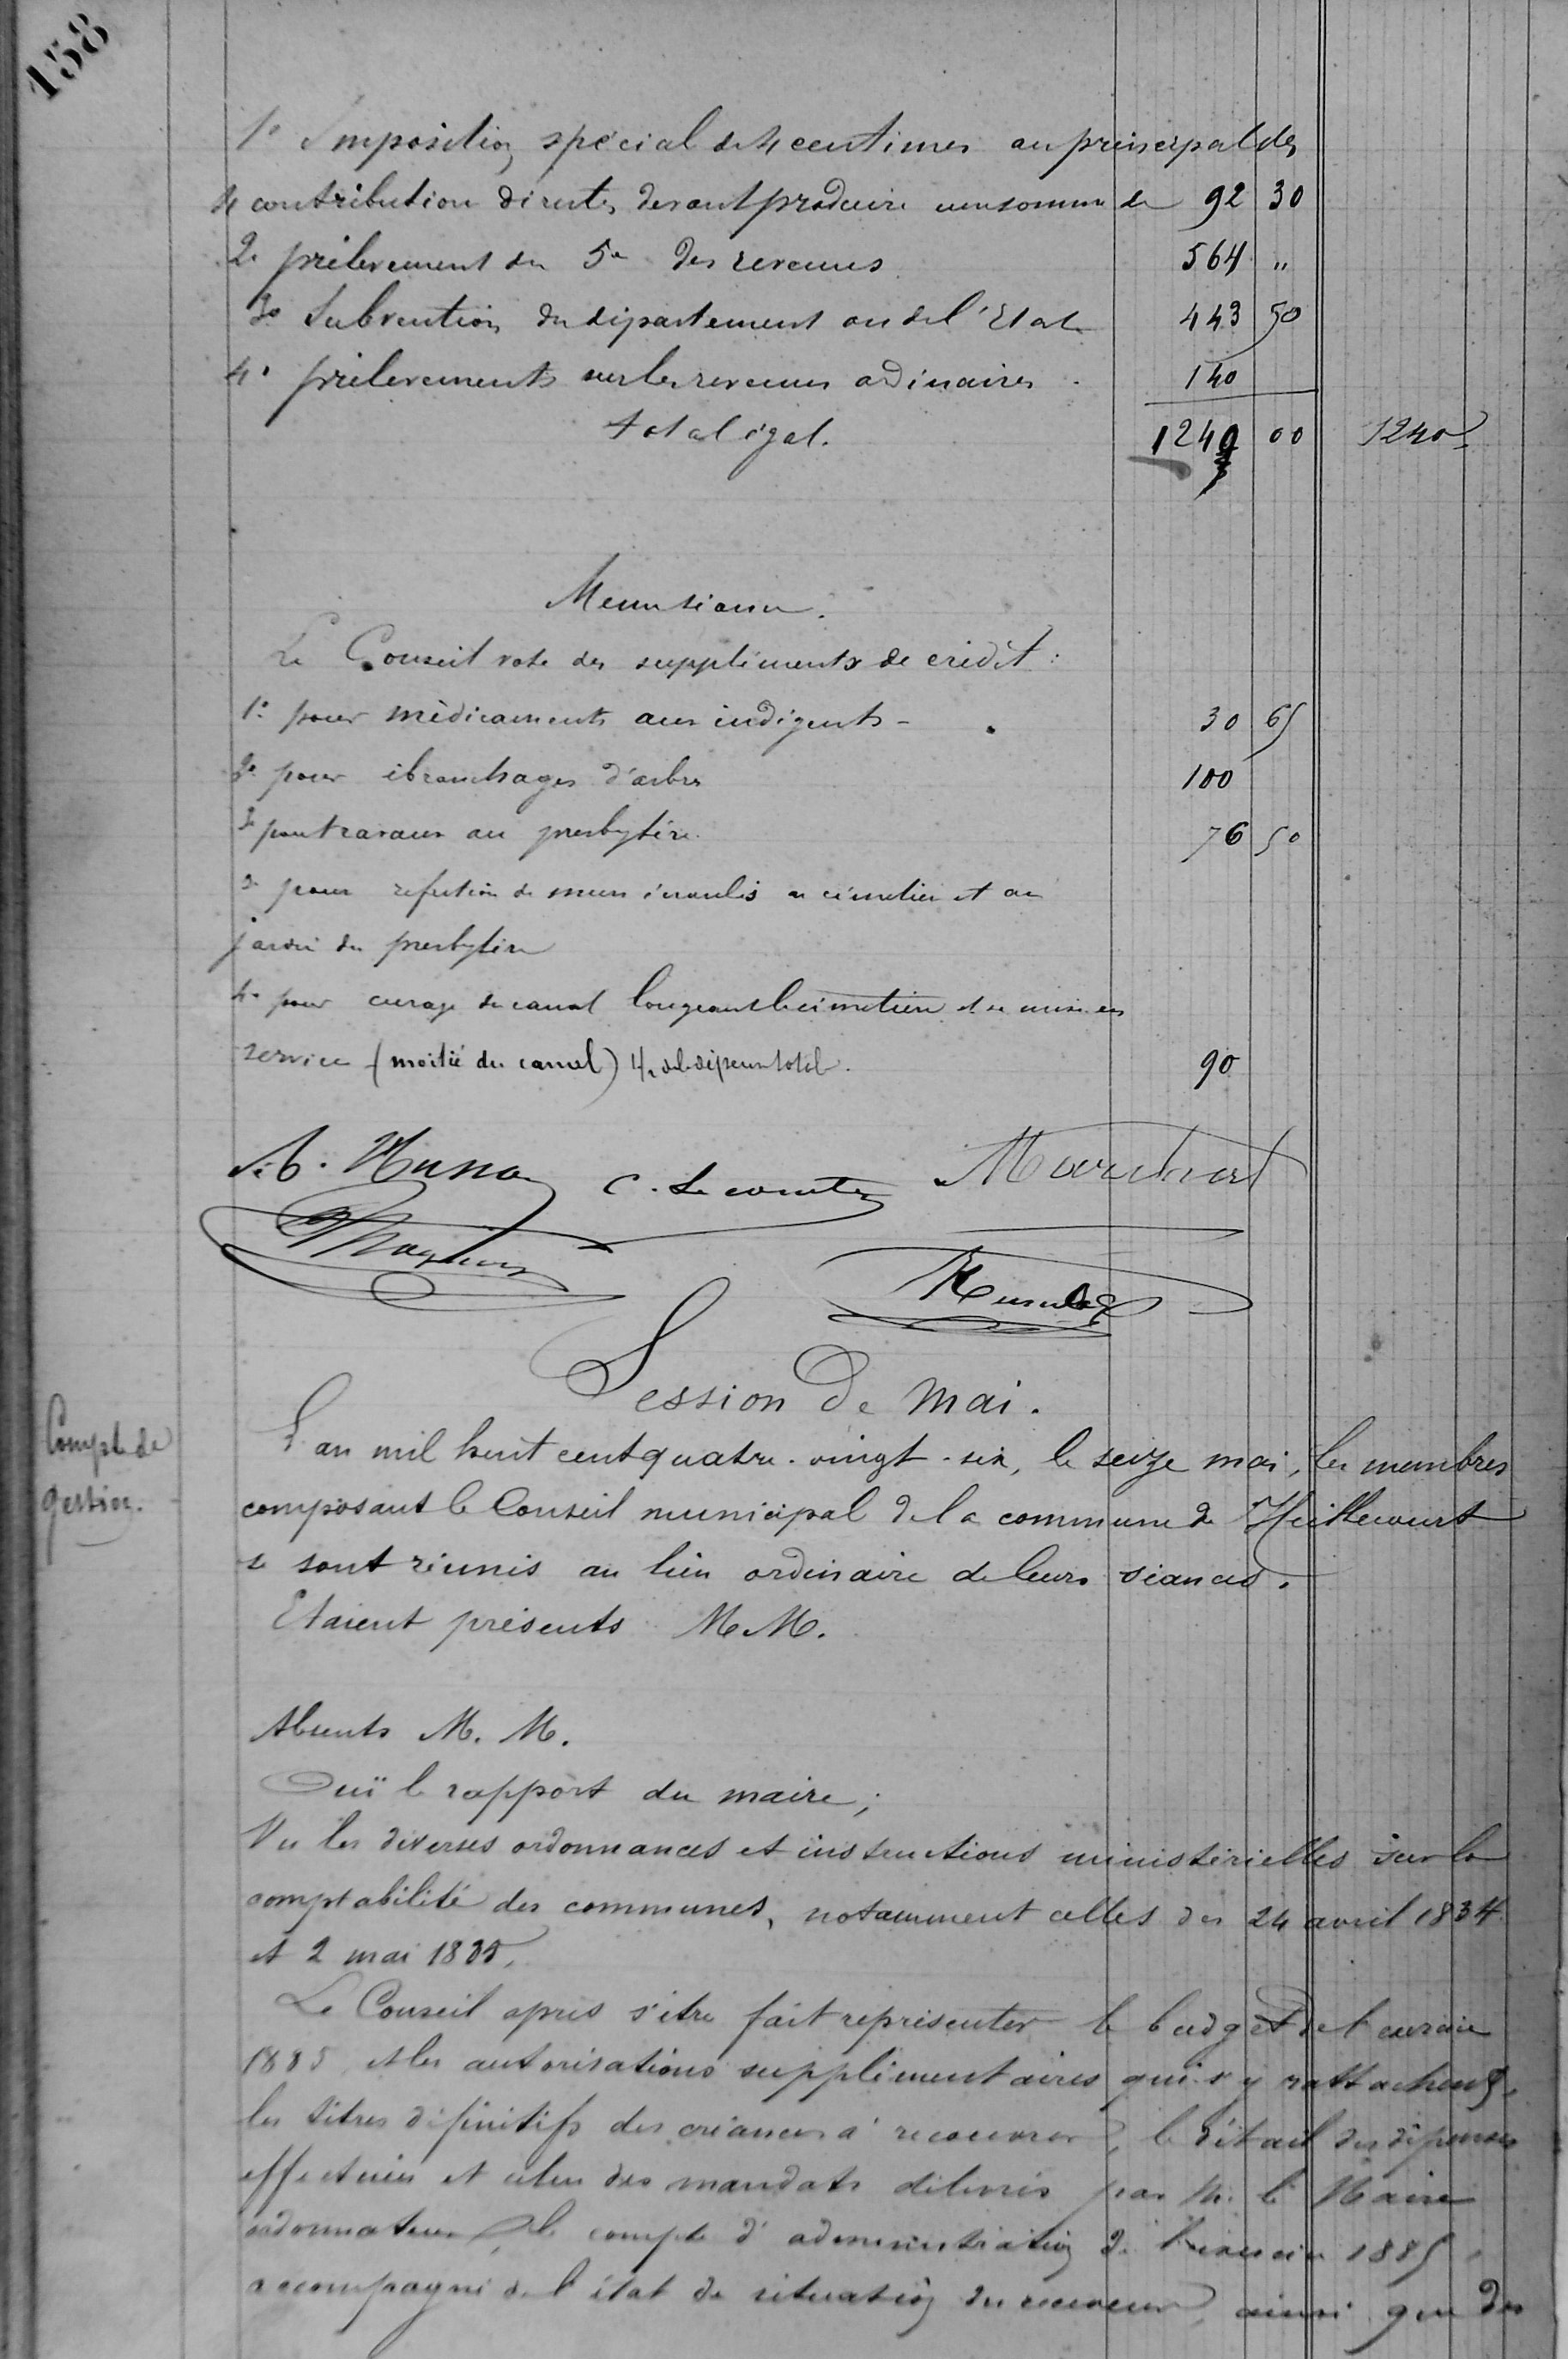 158
1° Imposition spécial de 4 centimes au principal des
4 contribution directes devant produire une somme de 92 30
2° prélèvement du 5e des revenus 564 "
3° Subvention du département ou de l'Etat 443 50
4° prélèvements sur les revenus ordinaires. 140
total égal. 1240 00 1240
Même séance.
Le Conseil vote des suppléments de crédit :
1° pour médicaments aux indigents - 30 65
2° pour ébranchages d'arbres 100
3° pour travaux au presbytère. 76 50
3° pour refection de murs écroulés au cimetière et au
jardin du presbytère
4° pour curage du canal longeant le cimetière et sa mise en
service (moitié du canal) 1/2 de la dépense totale. 90
C. Lecomte Marchal
Session de Mai.
Compte de
gestion.
L'an mil huit cent quatre-vingt-six, le seize mai, les membres
composant le Conseil municipal de la commune de Heillecourt
se sont réunis au lieu ordinaire de leurs séances.
Etaient présents M.M.
Absents M. M.
Ouï le rapport du maire ;
Vu les diverses ordonnances et instructions ministérielles sur la
comptabilité des communes, notamment celles des 24 avril 1834
et 2 mai 1835,
Le Conseil après s'être fait représenter le budget de l'exercice
1885 et les autorisations supplémentaires qui s'y rattachent,
les titres définitifs des créances à recouvrer, le détail des dépenses
effectuées et celui des mandats délivrés par M. le Maire
ordonnateur, le compte d'administration de l'exercice 1885,
accompagné de l'état de situation du receveur, ainsi que des